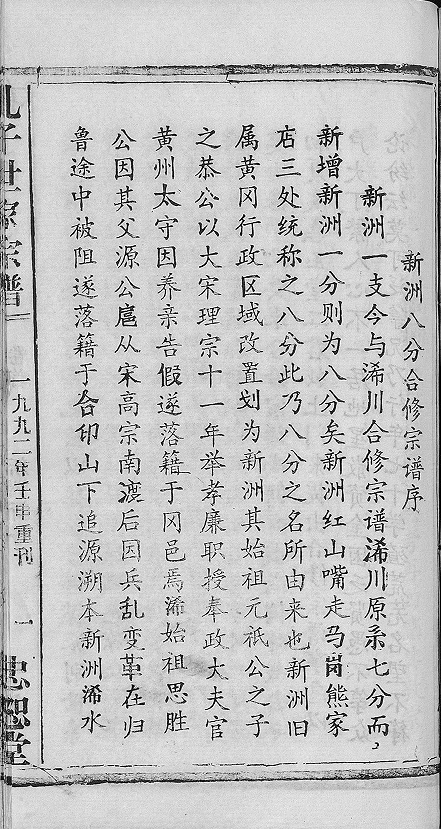 新洲八分合修宗谱序
新洲一支今与浠川合修宗谱浠川原系七分而
新增新洲一分则为八分矣新洲红山嘴走马岗熊家
店三处统称之八分此乃八分之名所由来也新洲旧
属黄冈行政区域改置划为新洲其始祖元祇公之子
之恭公以大宋理宗十一年举孝廉职授奉政大夫官
黄州太守因养亲告假遂落籍于冈邑焉浠始祖思胜
公因其父源公扈从宋高宗南渡后因兵乱变革在归
鲁途中被阻遂落籍于合印山下追源溯本新洲浠水
孔子世家宗谱
一九九二年壬申重刊
一
忠恕堂